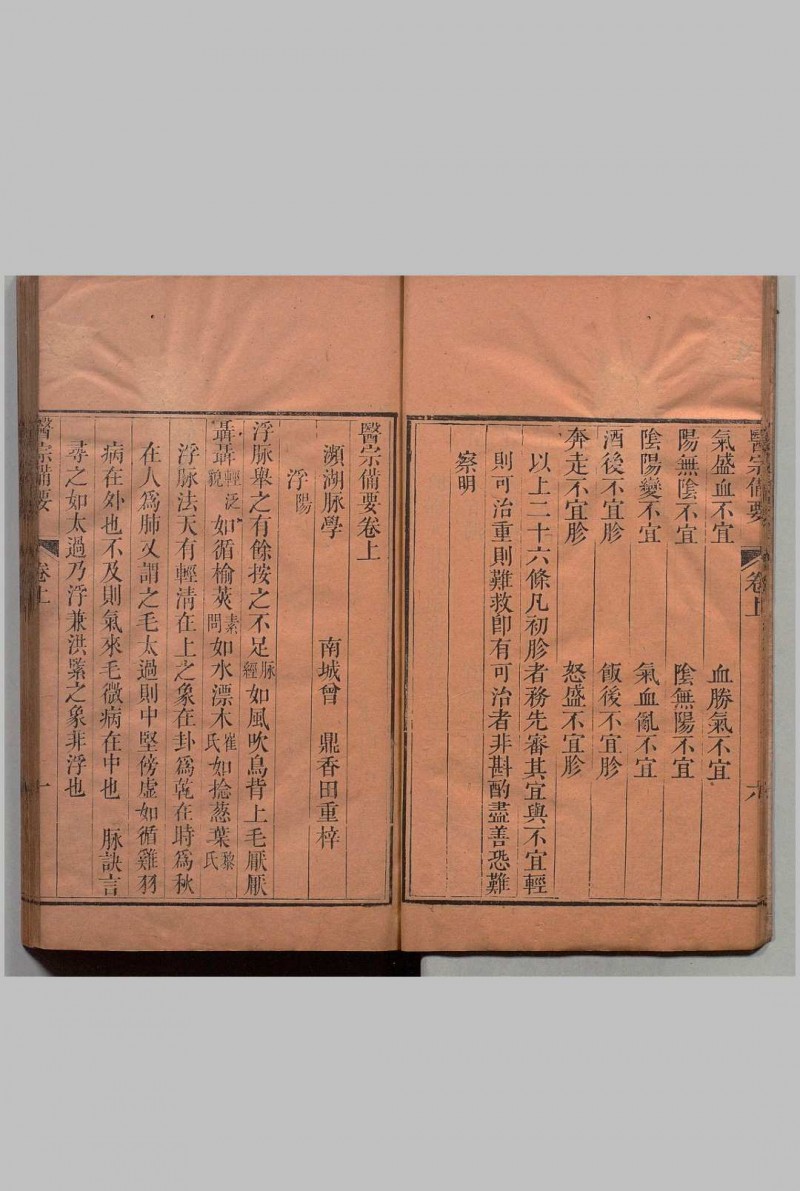 醫宗備要 卷上 六
氣盛血不宜 血勝氣不宜
陽無陰不宜 陰無陽不宜
陰陽變不宜 氣血亂不宜
酒後不宜胗 飯後不宜胗
奔走不宜胗 怒盛不宜胗
以上二十六條凡初胗者務先審其宜與不宜輕
則可治重則難救卽有可治者非斟酌盡善恐難
察明
醫宗備要卷上
瀕湖脉學 南城曾 鼎香田重梓
浮陽
浮脉舉之有餘按之不足脉經如風吹鳥背上毛厭厭
聶聶輕泛貌如循榆莢素問如水漂木崔氏如捻葱葉黎氏
浮脉法天有輕清在上之象在卦爲乾在時爲秋
在人爲肺又謂之毛太過則中堅傍虛如循雞羽
病在外也不及則氣來毛微病在中也 脉訣言
尋之如太過乃浮兼洪緊之象非浮也
醫宗備要 卷上 一